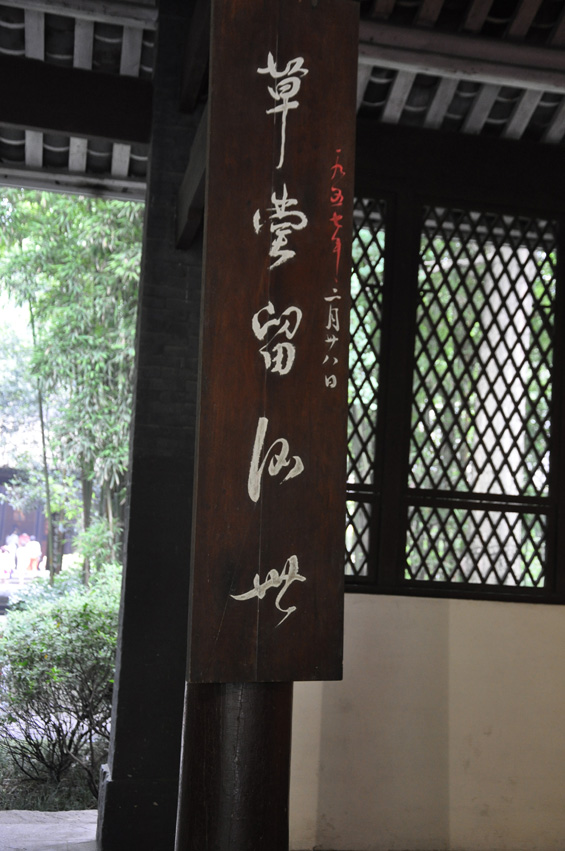 一九五七年二月廿八日
草堂留後世